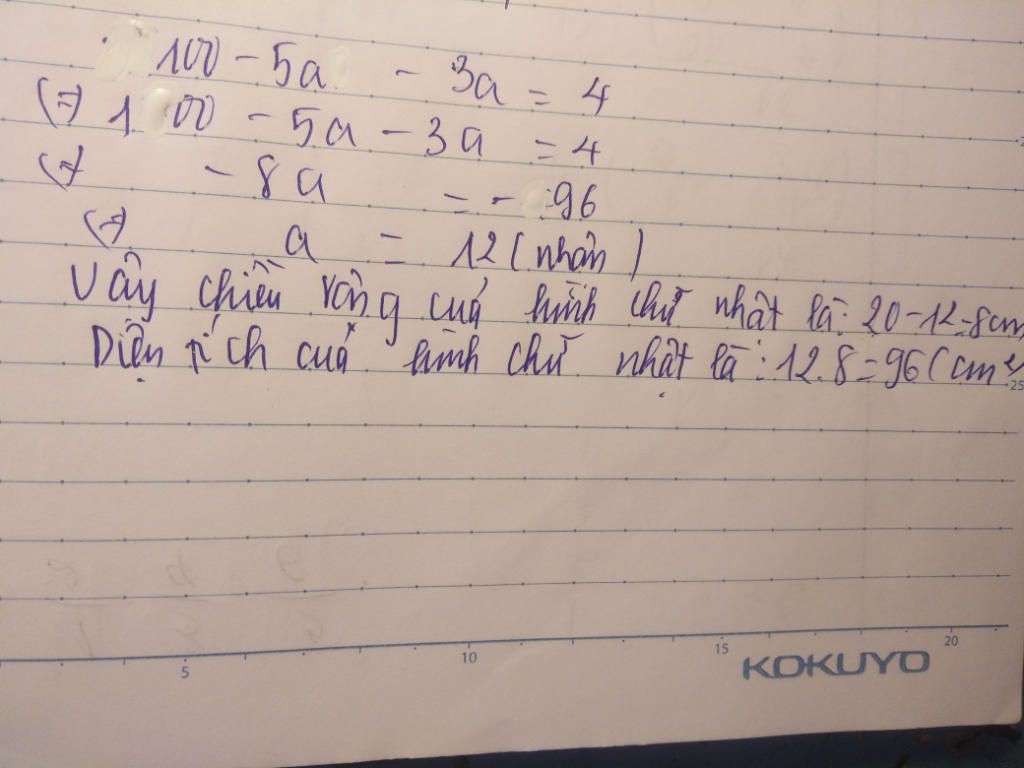 100 - 5a - 3a = 4
(=) 100 - 5a - 3a = 4
(=) - 8a = - 96
(=) a = 12 (nhận)
Vậy chiều rộng cuả hình chữ nhật là: 20 - 12 = 8cm
Diện tích cuả hình chữ nhật là: 12.8 = 96 (cm²
25
5 10 15 20
KOKUYO